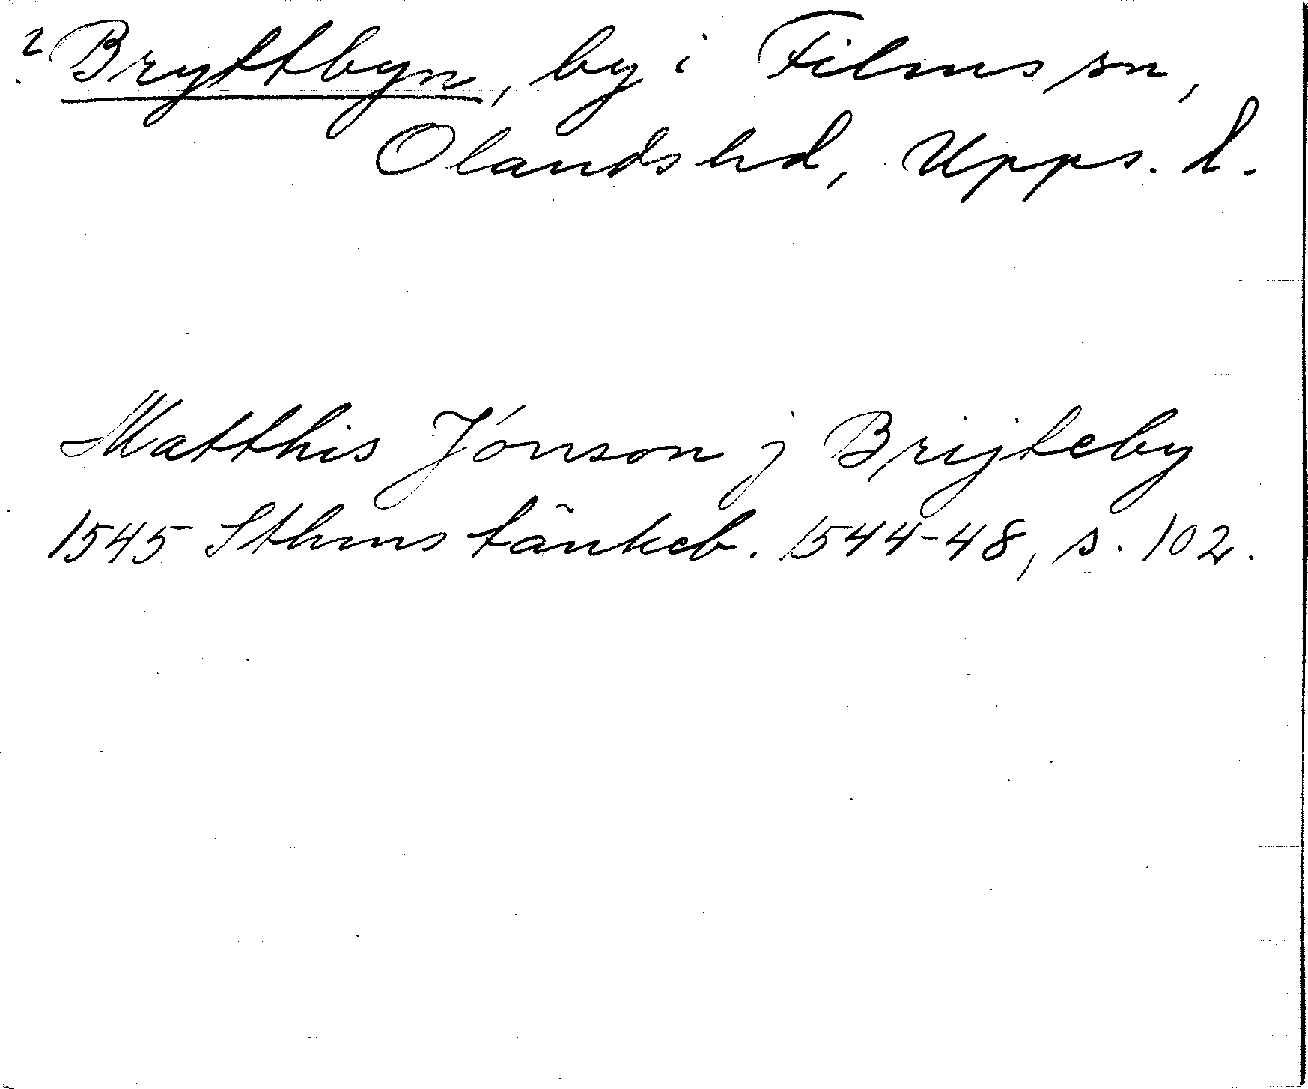 ? Bryttbyn, by i Films sn,
Olands hd, Upps. l.
Matthis Jonson j Brijteby
1545 Sthms tänkeb. 1544-48, s. 102.